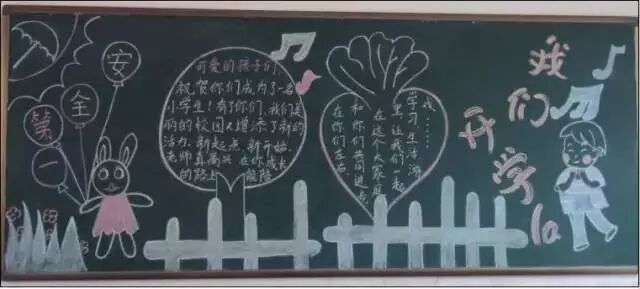 安
全
第
一
可爱的孩子们
祝贺你们成为了一名
小学生!有了你们,我们美
丽的校园又增添了新的
活力。新起点,新开始,
老师真高兴 在你成长
的路上 能陪
在你们左右,
和你们共同进步。
在这个大家庭
里,让我们一起
学习、生活、游
戏……
我们
开学la